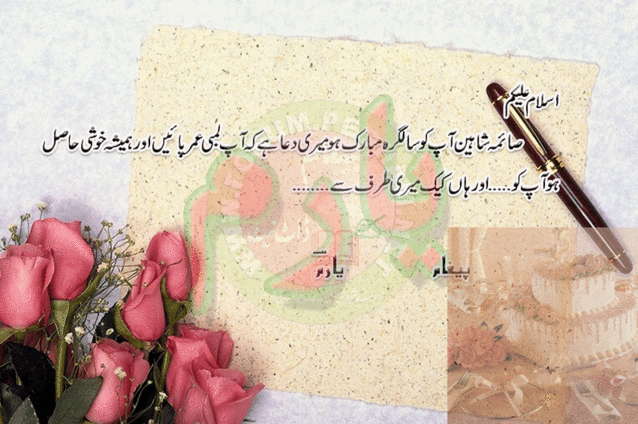 اسلام علیکم
صائمہ شاہین آپ کو سالگرہ مبارک ہو میری دعا ہے کہ آپ لمبی عمر پائیں اور ہمیشہ خوشی حاصل
ہو آپ کو.....اور ہاں کیک میری طرف سے........
پیغام یارم
یارم